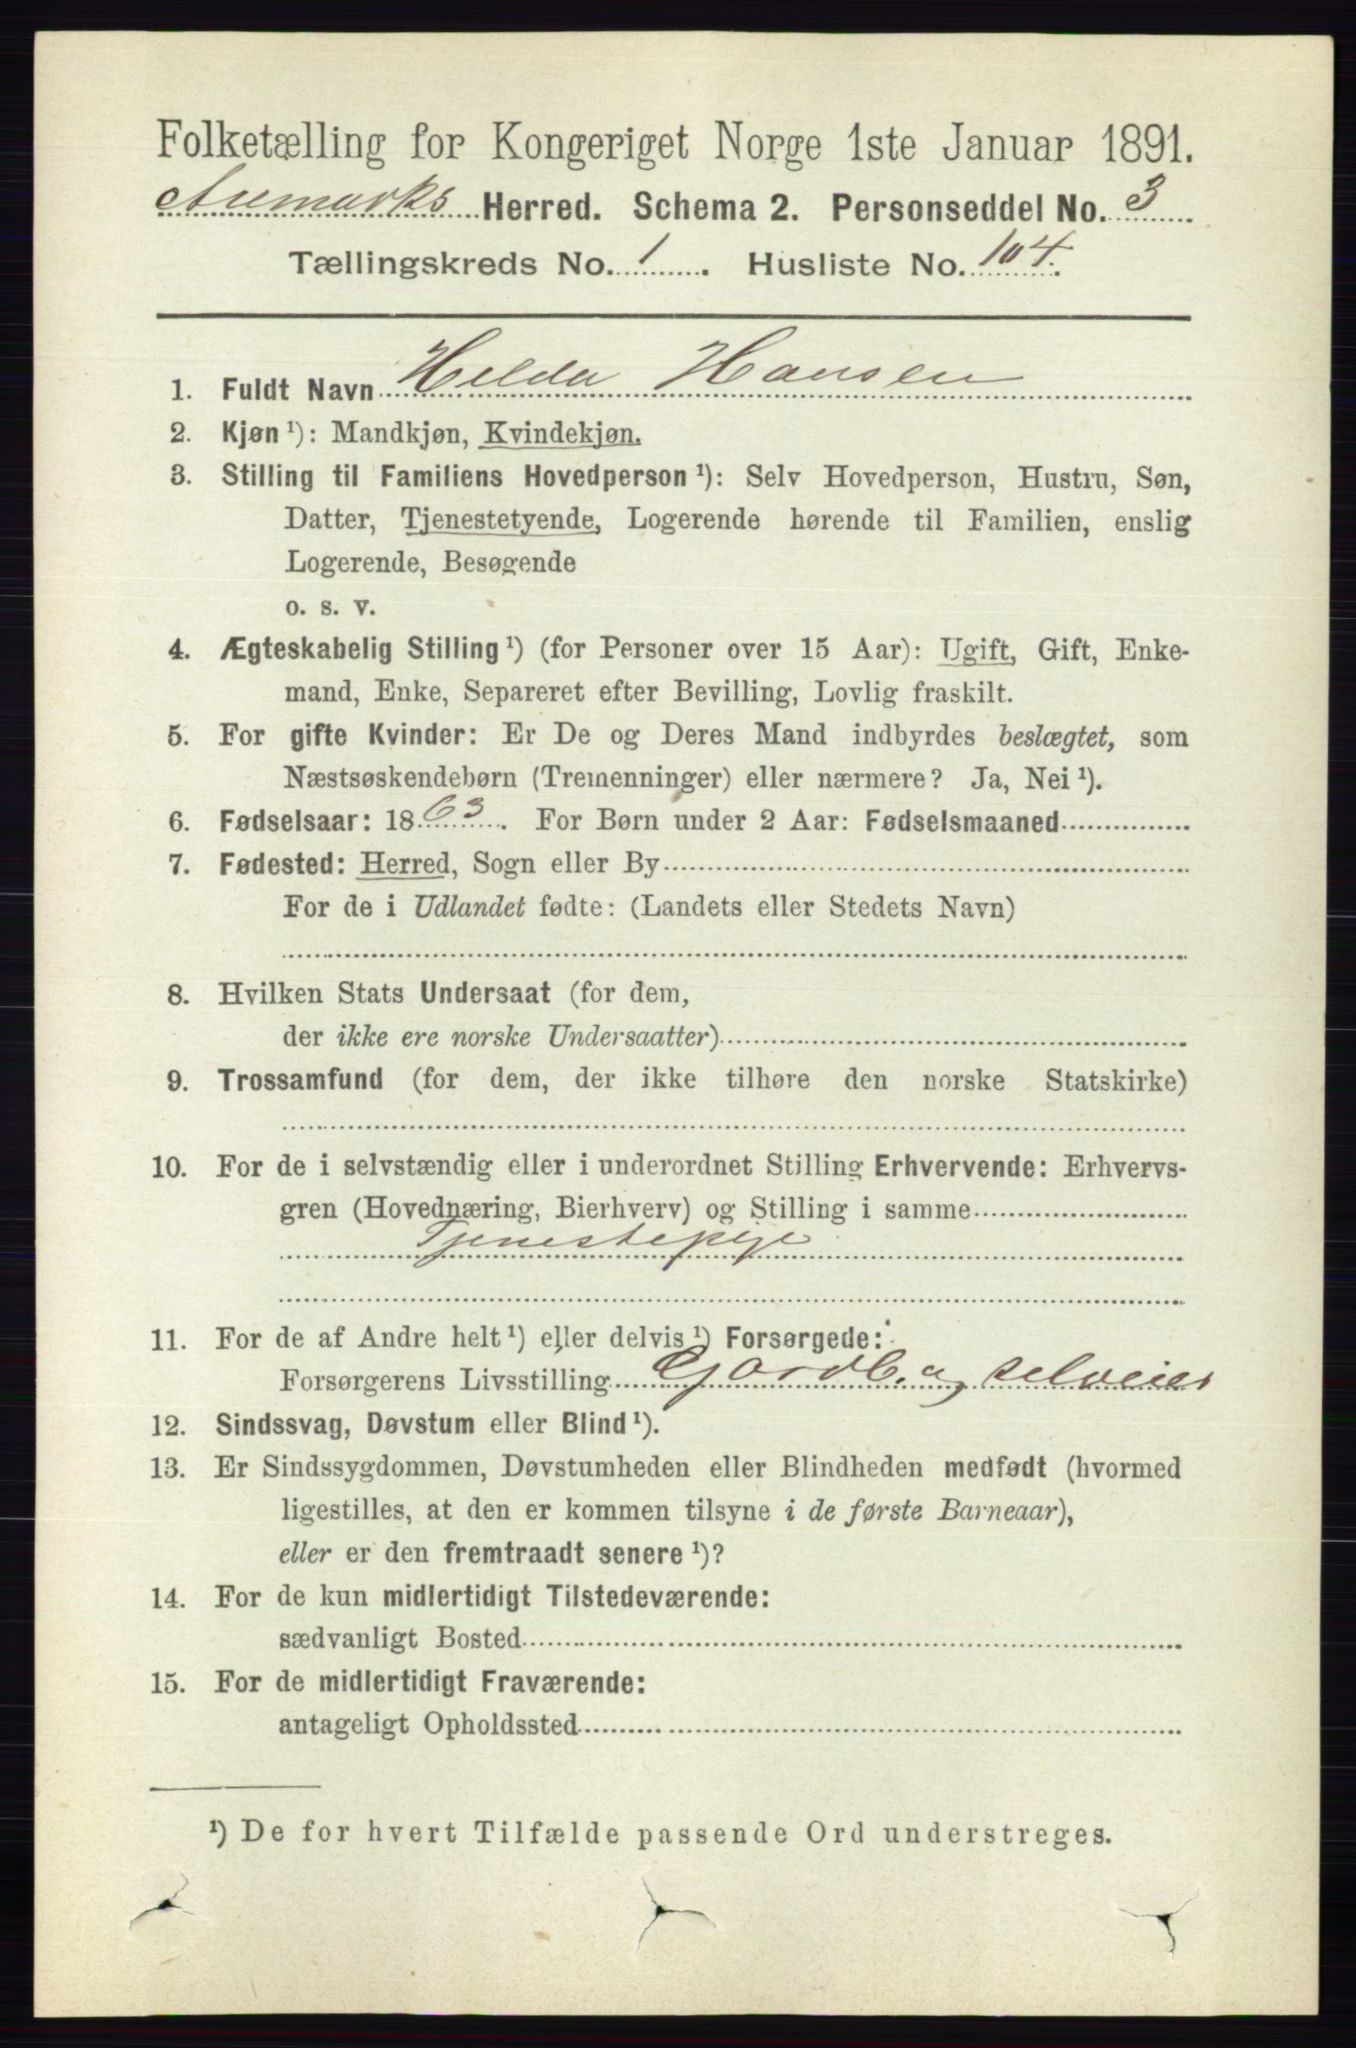 Folketælling for Kongeriget Norge 1ste Januar 1891.
Aremarks Herred. Schema 2. Personseddel No. 3
Tællingskreds No. 1. Husliste No. 104.
1. Fuldt Navn Helda Hansen
2. Kjøn ¹): Mandkjøn, Kvindekjøn.
3. Stilling til Familiens Hovedperson ¹): Selv Hovedperson, Hustru, Søn,
Datter, Tjenestetyende, Logerende hørende til Familien, enslig
Logerende, Besøgende
o. s. v.
4. Ægteskabelig Stilling ¹) (for Personer over 15 Aar): Ugift, Gift, Enke-
mand, Enke, Separeret efter Bevilling, Lovlig fraskilt.
5. For gifte Kvinder: Er De og Deres Mand indbyrdes beslægtet, som
Næstsøskendebørn (Tremenninger) eller nærmere? Ja, Nei ¹).
6. Fødselsaar: 1863. For Børn under 2 Aar: Fødselsmaaned
7. Fødested: Herred, Sogn eller By
For de i Udlandet fødte: (Landets eller Stedets Navn)
8. Hvilken Stats Undersaat (for dem,
der ikke ere norske Undersaatter)
9. Trossamfund (for dem, der ikke tilhøre den norske Statskirke)
10. For de i selvstændig eller i underordnet Stilling Erhvervende: Erhvervs-
gren (Hovednæring, Bierhverv) og Stilling i samme
Tjenestepige
11. For de af Andre helt ¹) eller delvis ¹) Forsørgede:
Forsørgerens Livsstilling Gaardb. og selveier
12. Sindssvag, Døvstum eller Blind ¹).
13. Er Sindssygdommen, Døvstumheden eller Blindheden medfødt (hvormed
ligestilles, at den er kommen tilsyne i de første Barneaar),
eller er den fremtraadt senere ¹)?
14. For de kun midlertidigt Tilstedeværende:
sædvanligt Bosted
15. For de midlertidigt Fraværende:
antageligt Opholdssted
¹) De for hvert Tilfælde passende Ord understreges.